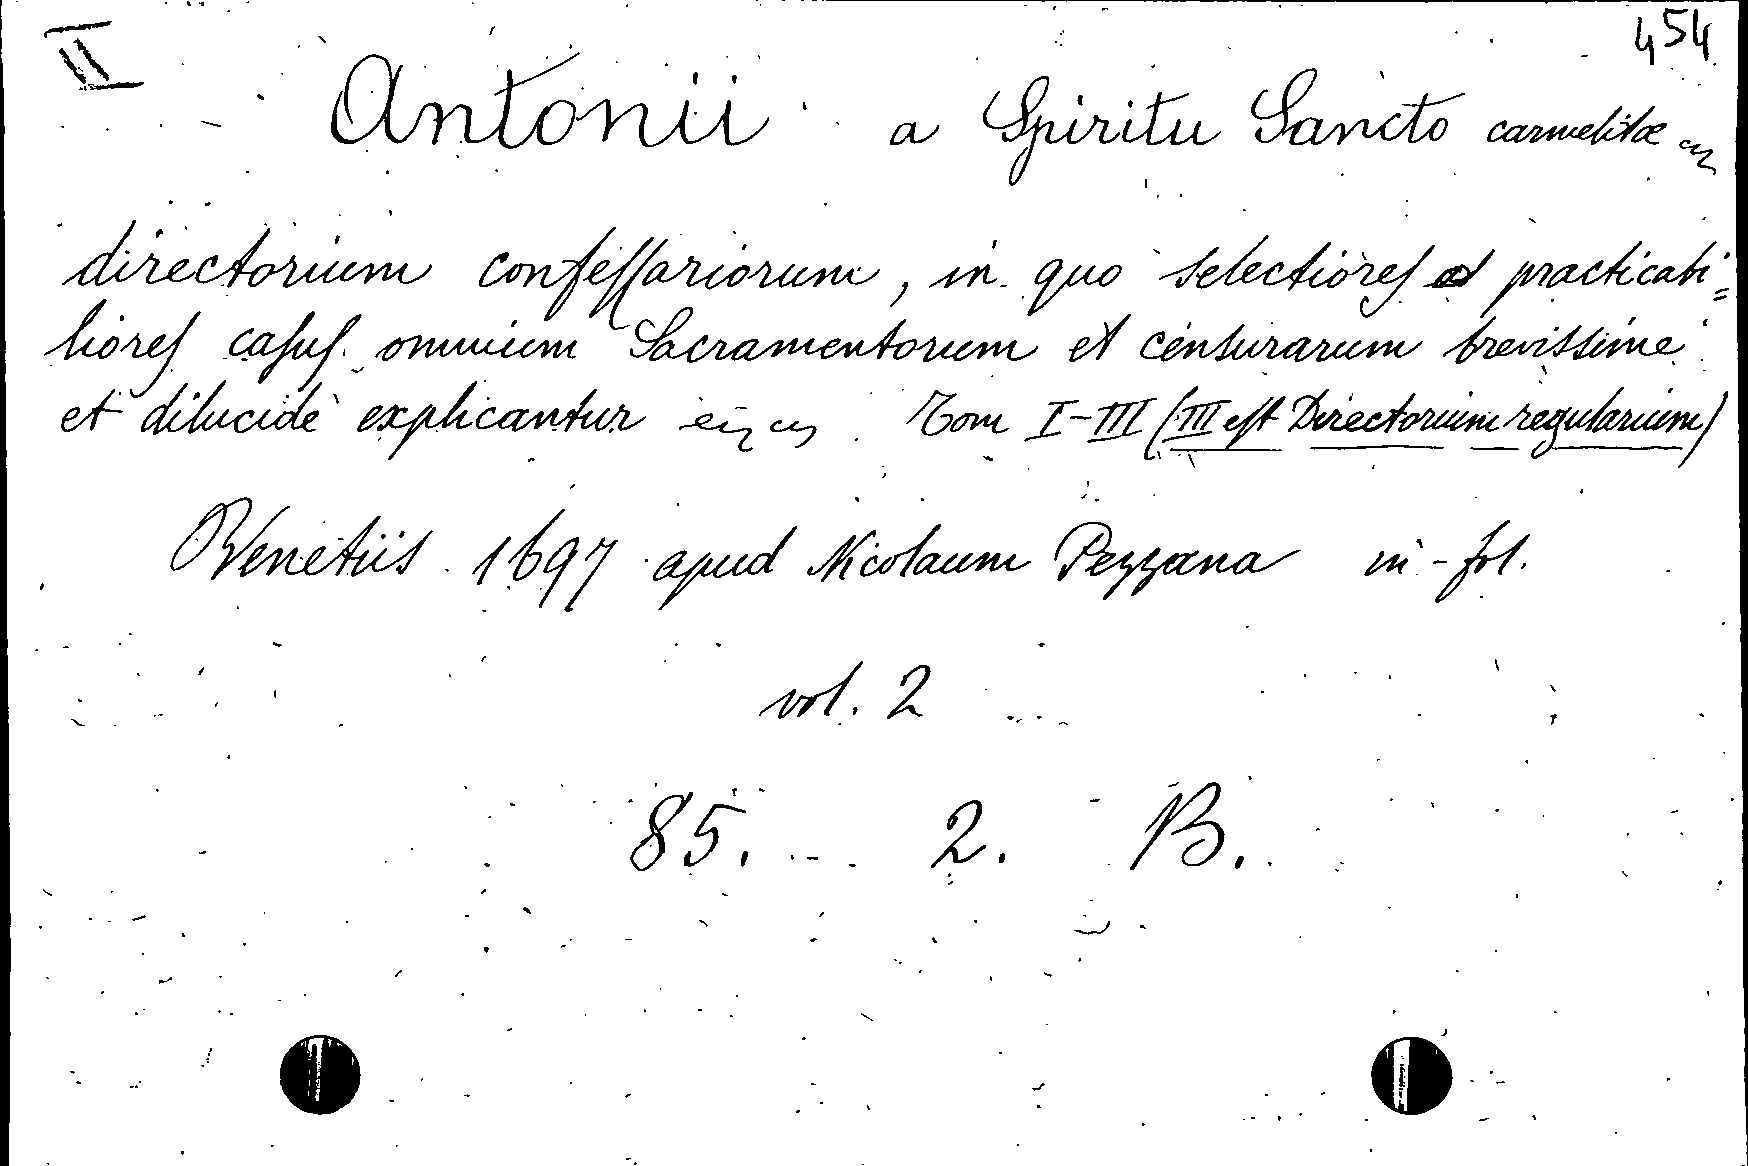 II 454
Antonii a Spiritu Sancto carmelitæ
directorium confessariorum, in quo selectiores et practicabi=
liores casus omnium Sacramentorum et censurarum brevissime
et dilucide explicantur Tom I-III (III est Directorium regularium)
Venetiis 1697 apud Nicolaum Pezzana in-fol.
vol. 2
85. 2. B.